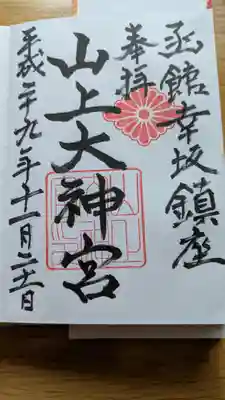 函館幸坂鎮座
奉拝
山上大神宮
平成二十九年十一月二十二日